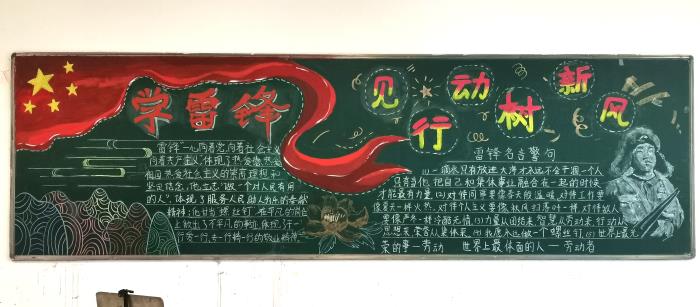 学雷锋
见行动树新风
雷锋一心向着党,向着社会主义
向着共产主义,体现了热爱党,热爱
祖国,热爱社会主义的崇高理想和
坚定信念,他立志"做一个对人民有用
的人",体现了服务人民,助人为乐的奉献
精神;他甘当螺丝钉,在平凡的岗位
上做出了不平凡的事业,体现了干一
行爱一行、专一行精一行的敬业精神。
雷锋名言警句
(1)一滴水只有放进大海才永远不会干涸,一个人
只有当他把自己和集体事业融合在一起的时候
才能最有力量。(2)对待同事要像春天般温暖,对待工作要
像夏天一样火热,对待个人主义要像秋风扫落叶一样,对待敌人
要像严冬一样冷酷无情。(3)力量从团结来,智慧从劳动来,行动从
思想来,荣誉从集体来。(4)我愿永远做一个螺丝钉。(5)世界上最光
荣的事—劳动 世界上最体面的人—劳动者